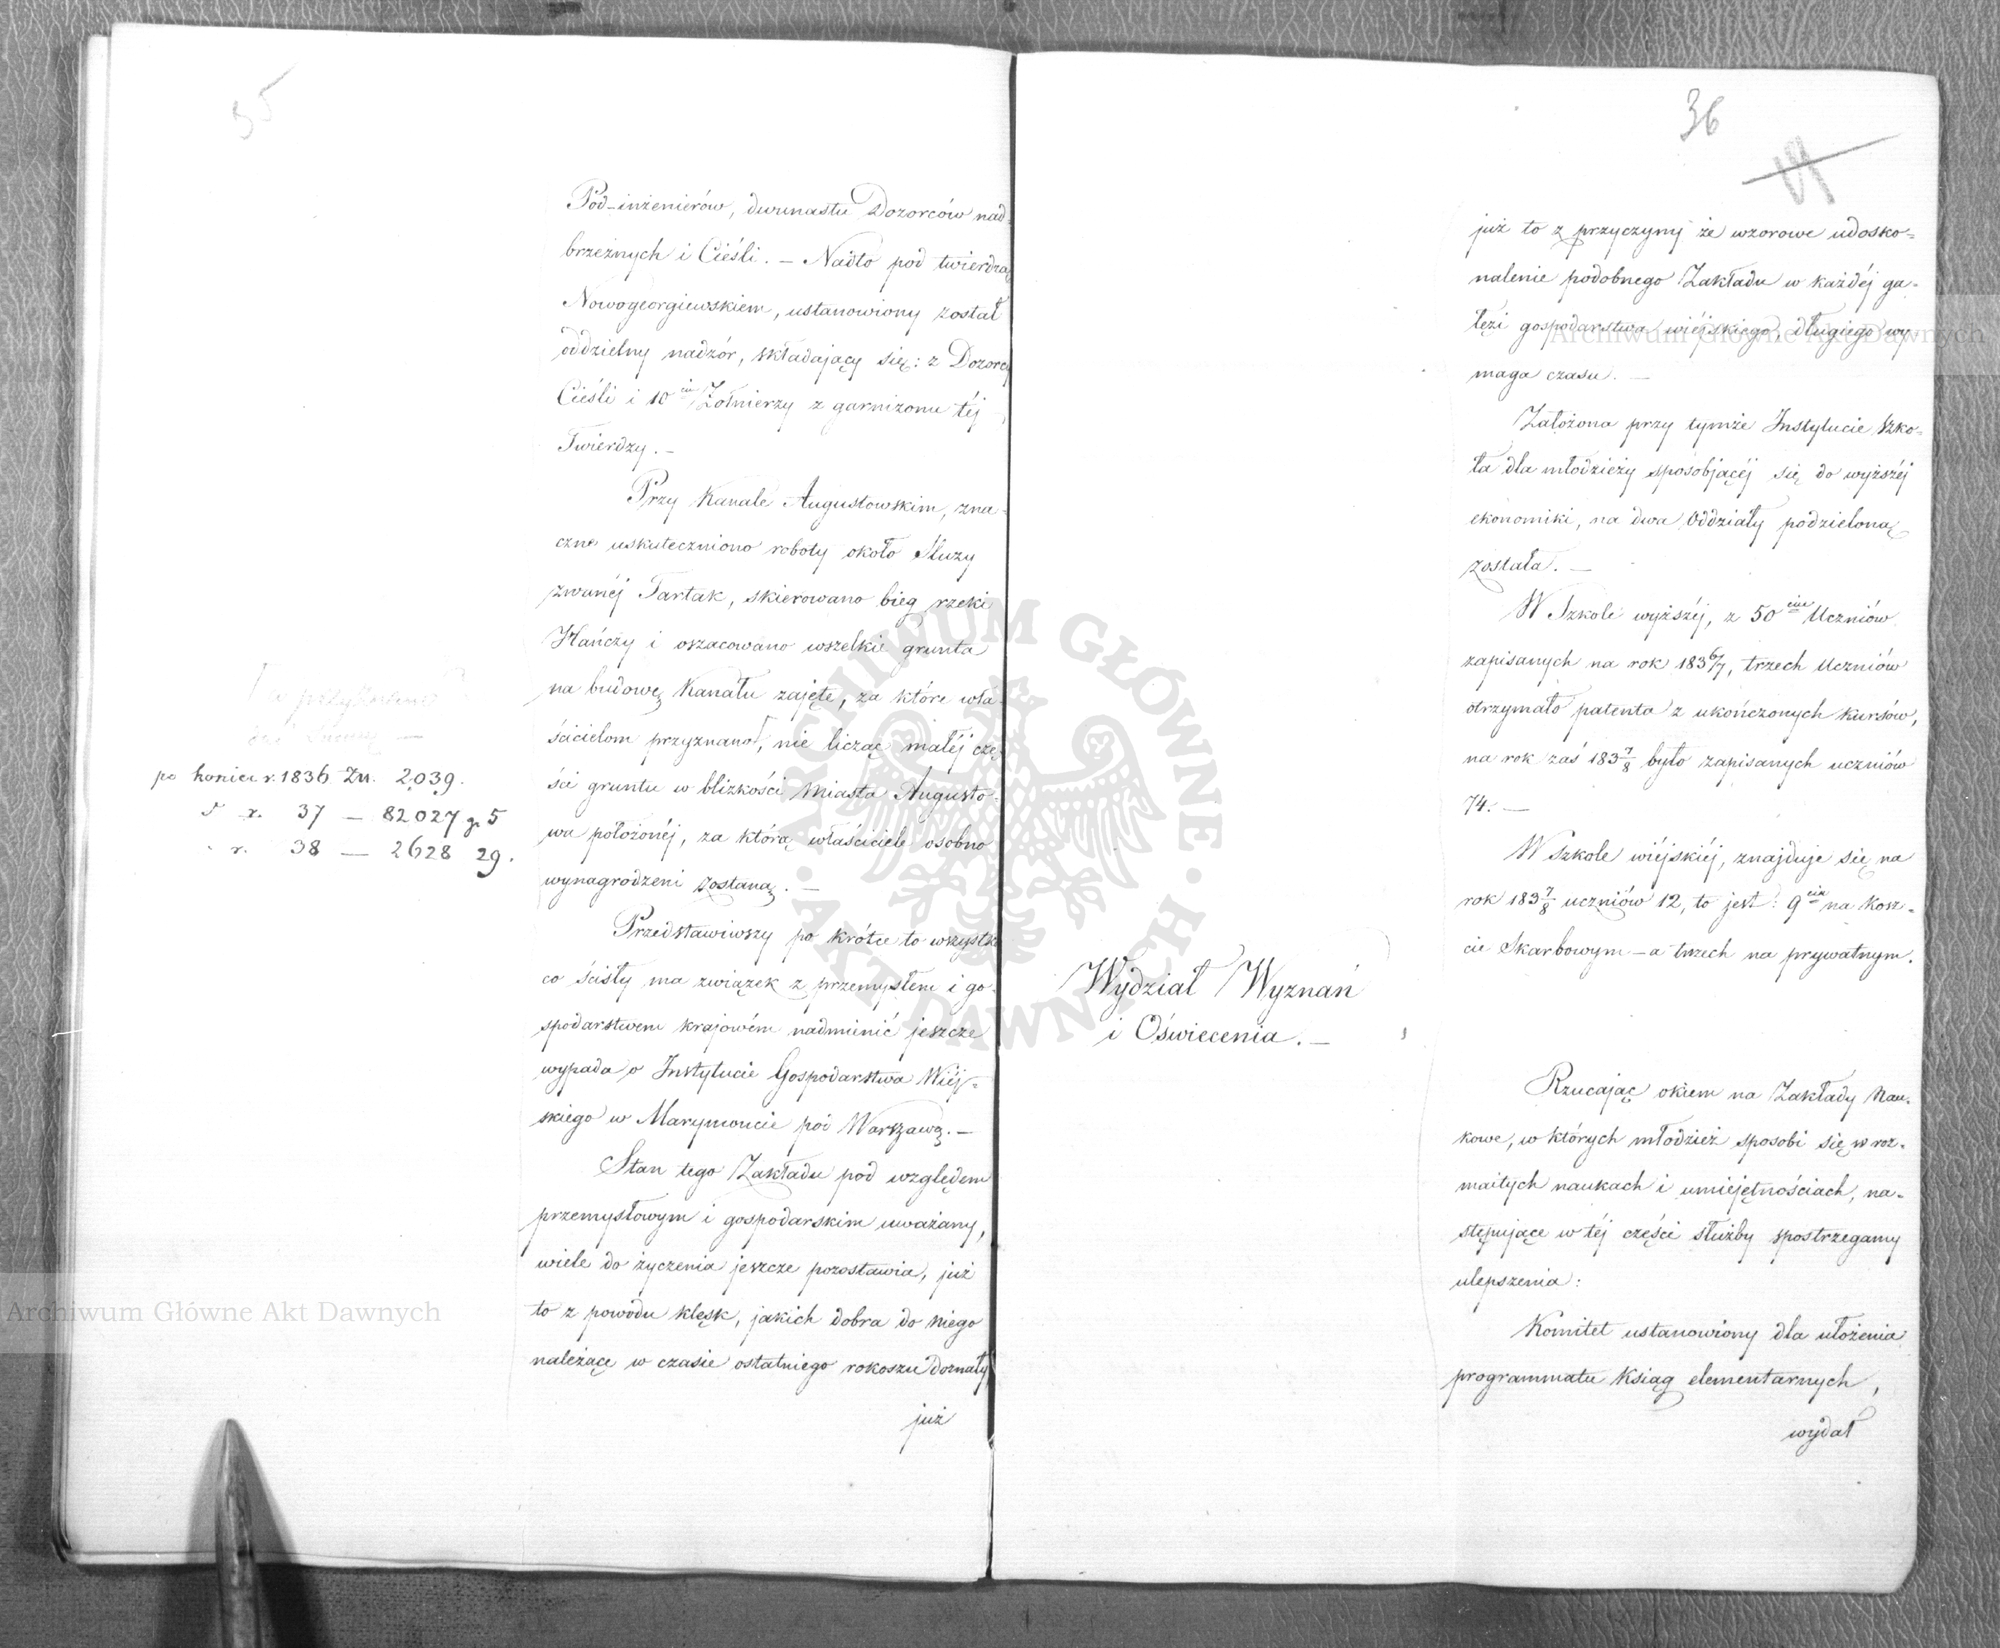 35
Pod-inżenierów, dwunastu Dozorców nad-
brzeżnych i Cieśli. — Nadto pod twierdzą
Nowogeorgiewskiem, ustanowiony został
oddzielny nadzór, składający się: z Dozorcy
Cieśli i 10ciu Żołnierzy z garnizonu téj
Twierdzy. —
Przy Kanale Augustowskim, zna-
czne uskuteczniono roboty około Śluzy
zwanéj Tartak, skierowano bieg rzeki
Hańczy i oszacowano wszelkie grunta
na budowę Kanału zajęte, za które wła-
ścicielom przyznano, nie licząc małéj czę-
ści gruntu w blizkości Miasta Augusto-
wa położonéj, za którą właściciele osobno
wynagrodzeni zostaną. —
po koniec r. 1836 Zł. 2,039.
r. 37 — 82027 g. 5
r. 38 — 2628 29.
Przedstawiwszy po krótce to wszystko
co ścisły ma związek z przemysłem i go-
spodarstwem krajowém nadmienić jeszcze
wypada o Instytucie Gospodarstwa Wiéj-
skiego w Marymoncie pod Warszawą. —
Stan tego Zakładu pod względem
przemysłowym i gospodarskim uważany,
wiele do życzenia jeszcze pozostawia, już
to z powodu klęsk, jakich dobra do niego
należące w czasie ostatniego rokoszu doznały
już
36
już to z przyczyny że wzorowe udosko-
nalenie podobnego Zakładu w każdéj ga-
łęzi gospodarstwa wiéjskiego, długiego wy
maga czasu. —
Założona przy tymże Instytucie Szko-
ła dla młodzieży sposobjącéj się do wyższéj
ekonomiki, na dwa Oddziały podzieloną
została. —
W Szkole wyższéj, z 50ciu Uczniów
zapisanych na rok 1836/7, trzech Uczniów
otrzymało patenta z ukończonych kursów,
na rok zaś 1837/8 było zapisanych uczniów
74. —
W Szkole wiéjskiéj, znajduje się na
rok 1837/8 uczniów 12, to jest: 9ciu na kosz-
cie Skarbowym — a trzech na prywatnym.
Wydział Wyznań
i Oświecenia. —
Rzucając okiem na Zakłady Nau-
kowe, w których młodzież sposobi się w roz-
maitych naukach i umiejętnościach, na-
stępujące w téj części służby spostrzegamy
ulepszenia:
Komitet ustanowiony dla ułożenia
programmatu Ksiąg elementarnych,
wydał
Archiwum Główne Akt Dawnych
Archiwum Główne Akt Dawnych
ARCHIWUM GŁÓWNE AKT DAWNYCH